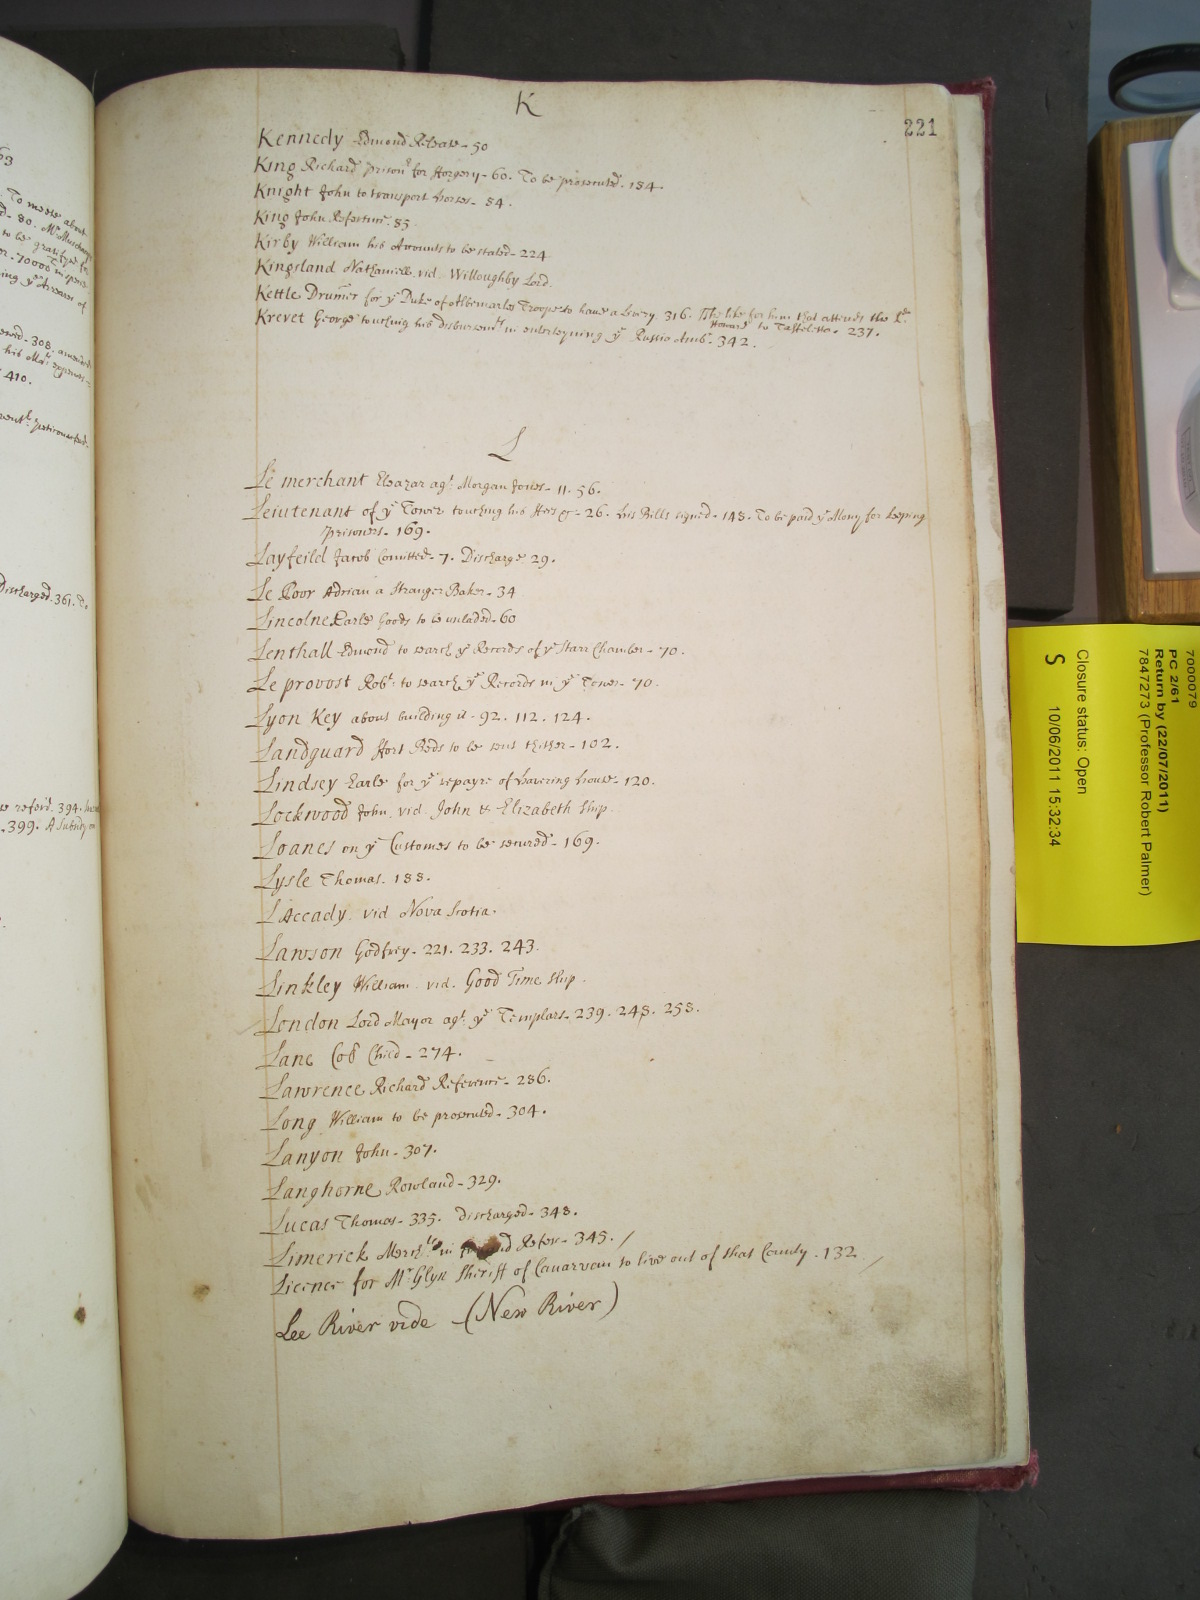 K
221
Kennedy Edmond Release - 50
King Richard prisonr for Forgery - 60. To be prosecuted - 184
Knight John to transport horses - 84.
King John Refertur - 85
Kirby William his Accounts to be stated - 224
Kingsland Nathaniell vid. Willoughby Lord.
Kettle Drumer for ye Duke of Albemarles Troope to have a Livery 316. The like for him that attends the Ld
Howard to Taffeletta. 237.
Krevet George touching his disbursemts in enterteyning ye Russia Amb. 342.
L
Le merchant Eleazar agt Morgan Jones - 11. 56.
Leiutenant of ye Tower touching his Fees &c - 26. his Bills signed - 148. To be paid ye Mony for keeping
prisoners - 169.
Layfeild Jacob Comitted - 7. Discharge 29.
Le Poor Adrian a Stranger Baker - 34
Lincolne Earle Goods to be unladed - 60
Lenthall Edmond to search ye Records of ye Starr Chamber - 70.
Le provost Robt to search ye Records in ye Tower - 70.
Lyon Key about building it - 92. 112. 124.
Landguard Fort Beds to be sent thither - 102.
Lindsey Earle for ye repayre of Havering house - 120.
Lockwood John vid. John & Elizabeth Ship
Loanes on ye Customes to be secured - 169.
Lysle Thomas. 188.
L'Accady vid Nova Scotia.
Lawson Godfrey - 221. 233. 243.
Linkley William vid. Good Time Ship.
London Lord Mayor agt ye Templars - 239. 248. 258.
Lane Coll Child - 274.
Lawrence Richard Reference - 286.
Long William to be prosecuted - 304.
Lanyon John - 307.
Langhorne Rowland - 329.
Lucas Thomas - 335. Discharged - 348.
Limerick Merchts in Refer - 345.
Licence for Mr Glyn Sheriff of Canarvan to live out of that County - 132
Lee River vide (New River)
63
To meete about
d - 80. Mr
to be gratifyed for
70000
ing ye Arreares of
308. amended
his Mats expences
410.
Discharged. 361.
referd. 394.
399. A Subsidy
7000079
PC 2/61
Return by (22/07/2011)
7847273 (Professor Robert Palmer)
Closure status: Open
S 10/06/2011 15:32:34